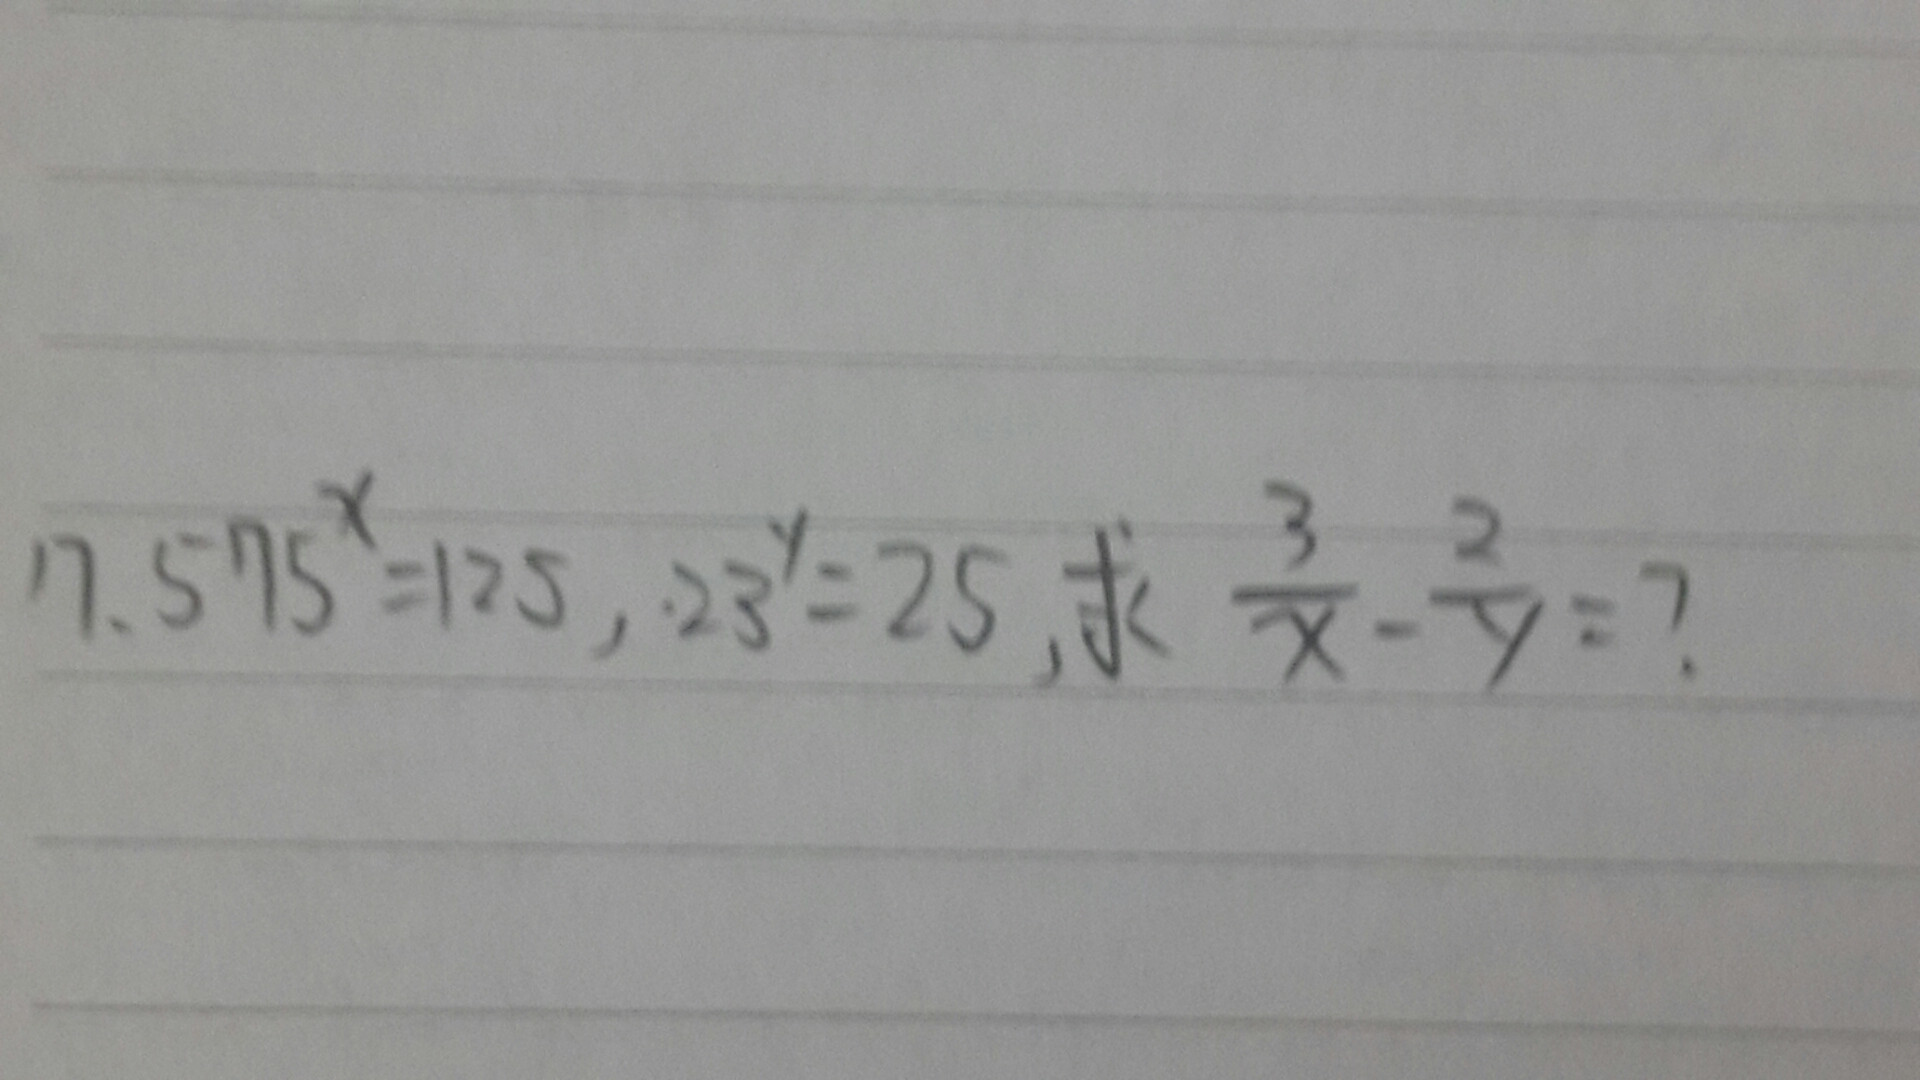 17. 575^x = 125, 23^y = 25, 求 3/x - 2/y = ?